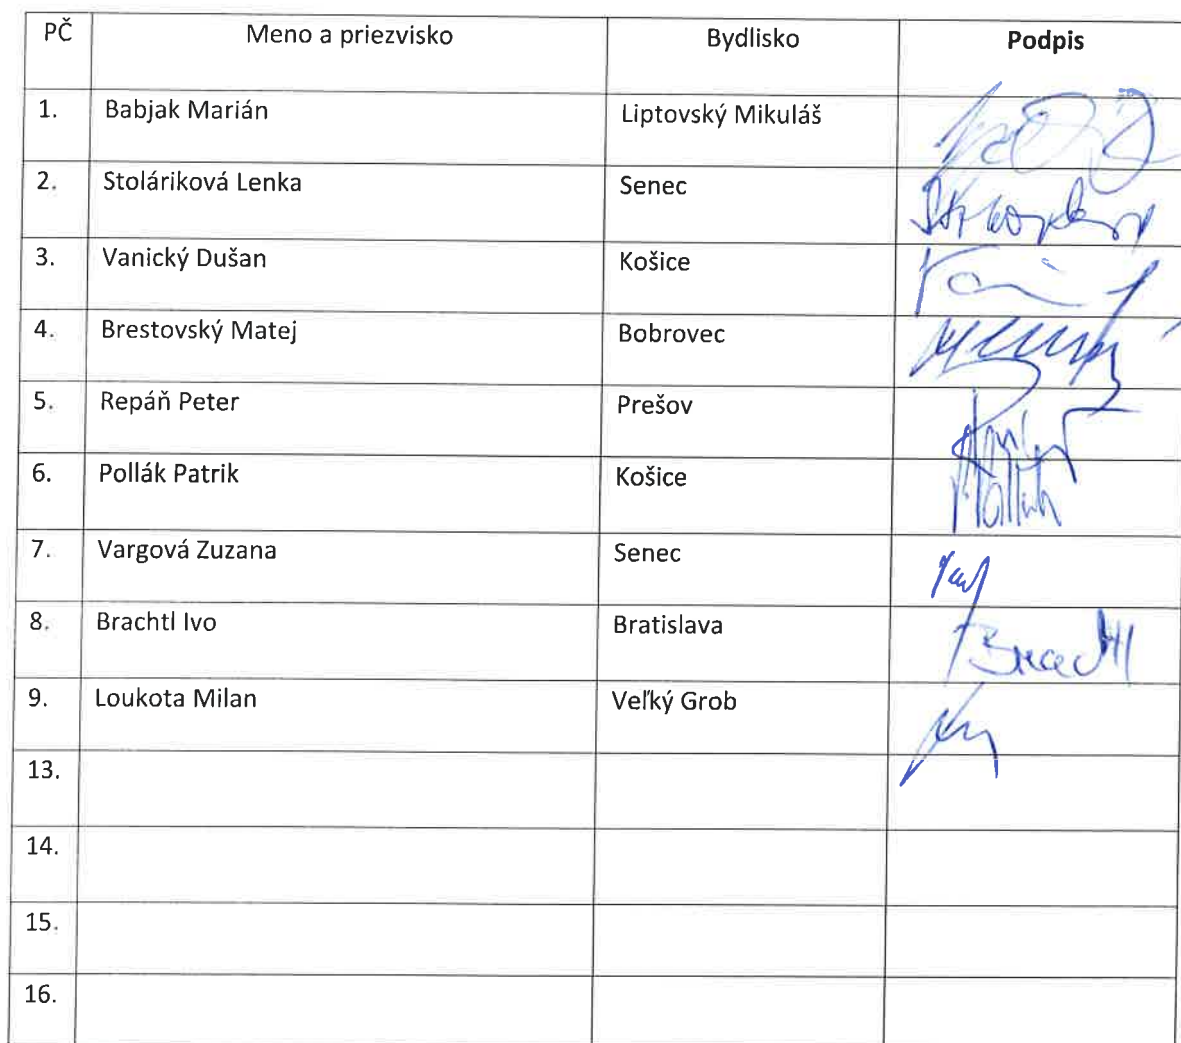 PČ Meno a priezvisko Bydlisko Podpis
1. Babjak Marián Liptovský Mikuláš
2. Stoláriková Lenka Senec
3. Vanický Dušan Košice
4. Brestovský Matej Bobrovec
5. Repáň Peter Prešov
6. Pollák Patrik Košice
7. Vargová Zuzana Senec
8. Brachtl Ivo Bratislava Brachtl
9. Loukota Milan Veľký Grob
13.
14.
15.
16.